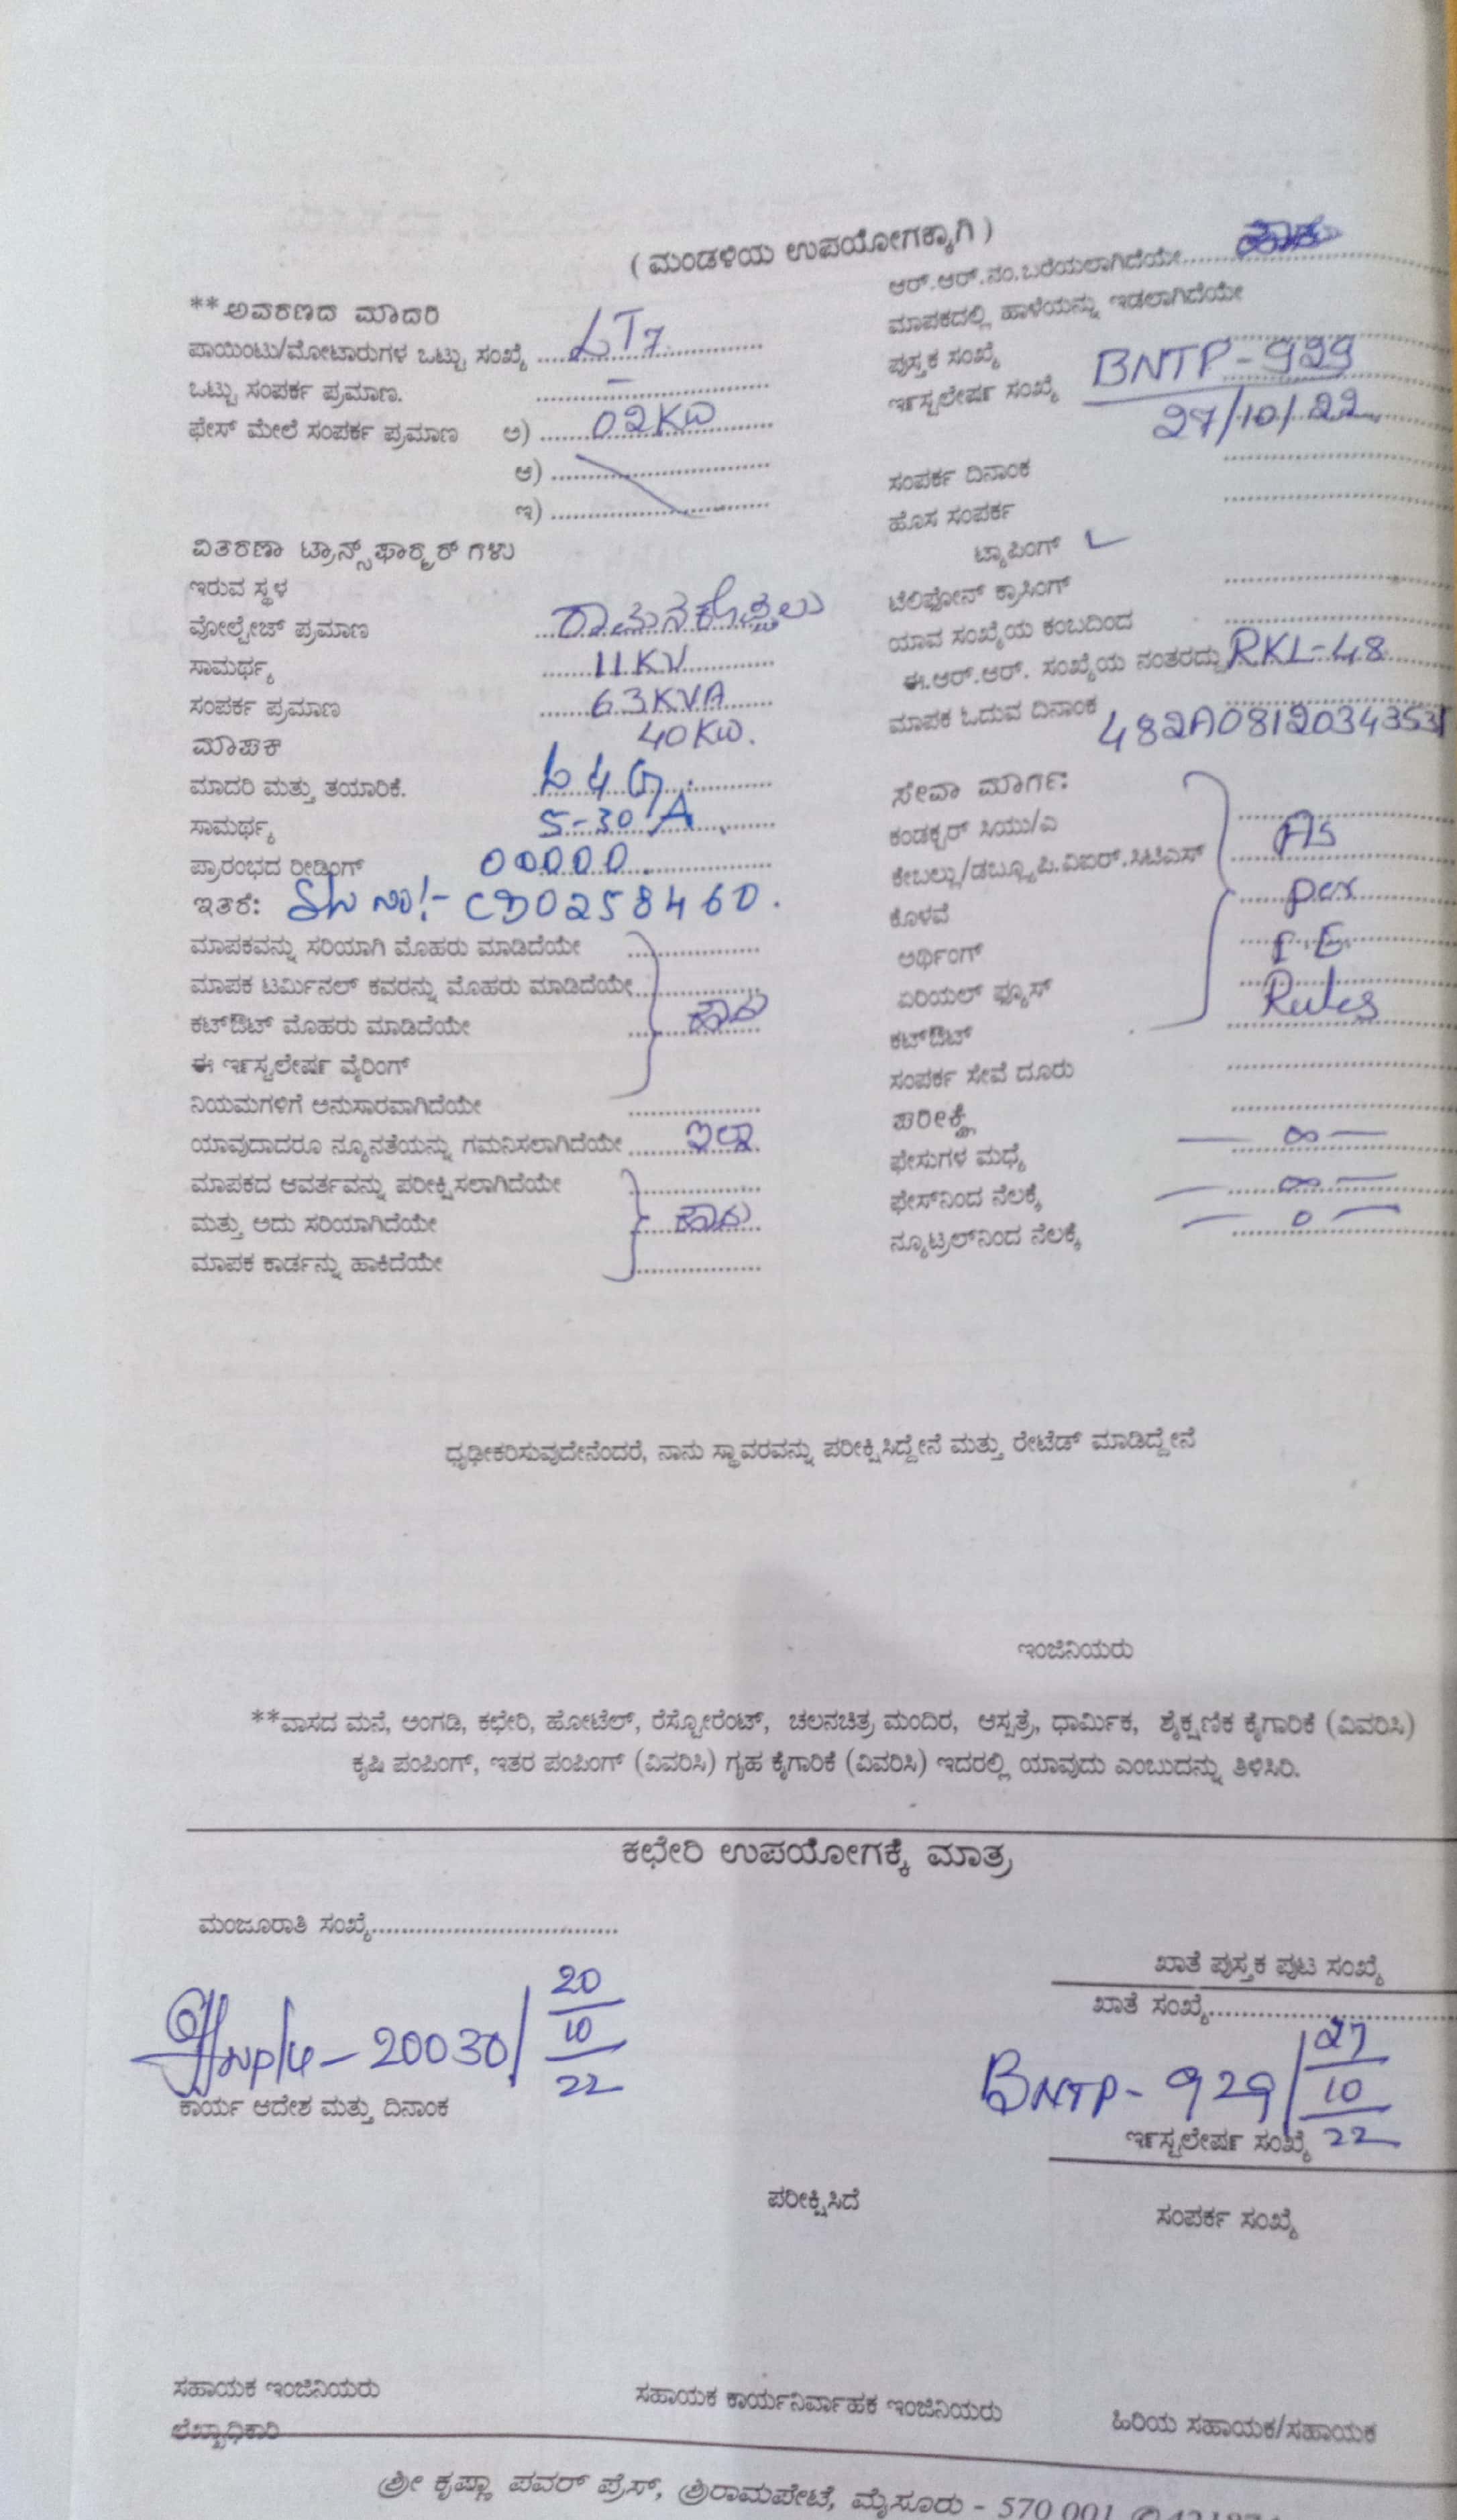 ( ಮಂಡಳಿಯ ಉಪಯೋಗಕ್ಕಾಗಿ )
**ಅವರಣದ ಮಾದರಿ
ಪಾಯಿಂಟು/ಮೋಟಾರುಗಳ ಒಟ್ಟು ಸಂಖ್ಯೆ LT7
ಒಟ್ಟು ಸಂಪರ್ಕ ಪ್ರಮಾಣ. –
ಫೇಸ್ ಮೇಲೆ ಸಂಪರ್ಕ ಪ್ರಮಾಣ ಅ) 02KW
ಆ)
ಇ)
ವಿತರಣಾ ಟ್ರಾನ್ಸ್‌ಫಾರ್‍ಮರ್ ಗಳು
ಇರುವ ಸ್ಥಳ
ವೋಲ್ಟೇಜ್ ಪ್ರಮಾಣ ರಾಮನಕೊಪ್ಪಲು
ಸಾಮರ್ಥ್ಯ 11KV
ಸಂಪರ್ಕ ಪ್ರಮಾಣ 63KVA
ಮಾಪಕ 40KW.
ಮಾದರಿ ಮತ್ತು ತಯಾರಿಕೆ. L&G
ಸಾಮರ್ಥ್ಯ 5-30 A
ಪ್ರಾರಂಭದ ರೀಡಿಂಗ್ 00000.
ಇತರೆ: CD0258460.
ಮಾಪಕವನ್ನು ಸರಿಯಾಗಿ ಮೊಹರು ಮಾಡಿದೆಯೇ
ಮಾಪಕ ಟರ್ಮಿನಲ್ ಕವರನ್ನು ಮೊಹರು ಮಾಡಿದೆಯೇ
ಕಟ್‌ಔಟ್ ಮೊಹರು ಮಾಡಿದೆಯೇ ಹೌದು
ಈ ಇನ್‌ಸ್ಟಲೇಷನ್ ವೈರಿಂಗ್
ನಿಯಮಗಳಿಗೆ ಅನುಸಾರವಾಗಿದೆಯೇ
ಯಾವುದಾದರೂ ನ್ಯೂನತೆಯನ್ನು ಗಮನಿಸಲಾಗಿದೆಯೇ ಇಲ್ಲ
ಮಾಪಕದ ಆವರ್ತವನ್ನು ಪರೀಕ್ಷಿಸಲಾಗಿದೆಯೇ
ಮತ್ತು ಅದು ಸರಿಯಾಗಿದೆಯೇ ಹೌದು
ಮಾಪಕ ಕಾರ್ಡನ್ನು ಹಾಕಿದೆಯೇ
ಆರ್.ಆರ್.ನಂ.ಬರೆಯಲಾಗಿದೆಯೇ
ಮಾಪಕದಲ್ಲಿ ಹಾಳೆಯನ್ನು ಇಡಲಾಗಿದೆಯೇ
ಪುಸ್ತಕ ಸಂಖ್ಯೆ
ಇನ್‌ಸ್ಟಲೇಷನ್ ಸಂಖ್ಯೆ BNTP-929
27/10/22
ಸಂಪರ್ಕ ದಿನಾಂಕ
ಹೊಸ ಸಂಪರ್ಕ
ಟ್ಯಾಪಿಂಗ್ ✓
ಟೆಲಿಫೋನ್ ಕ್ರಾಸಿಂಗ್
ಯಾವ ಸಂಖ್ಯೆಯ ಕಂಬದಿಂದ
ಈ.ಆರ್.ಆರ್. ಸಂಖ್ಯೆಯ ನಂತರದ್ದು RKL-48
ಮಾಪಕ ಓದುವ ದಿನಾಂಕ 482A0812034353
ಸೇವಾ ಮಾರ್ಗ:
ಕಂಡಕ್ಟರ್ ಸಿಯು/ಎ As
ಕೇಬಲ್ಲು/ಡಬ್ಲ್ಯೂಪಿ.ವಿಐಆರ್.ಸಿಟಿಎಸ್
ಕೊಳವೆ per
ಅರ್ಥಿಂಗ್ I.E
ಏರಿಯಲ್ ಫ್ಯೂಸ್ Rules
ಕಟ್‌ಔಟ್
ಸಂಪರ್ಕ ಸೇವೆ ದೂರು
ಪರೀಕ್ಷೆ
ಫೇಸುಗಳ ಮಧ್ಯೆ — ∞ —
ಫೇಸ್‌ನಿಂದ ನೆಲಕ್ಕೆ — ∞ —
ನ್ಯೂಟ್ರಲ್‌ನಿಂದ ನೆಲಕ್ಕೆ — 0 —
ಧೃಢೀಕರಿಸುವುದೇನೆಂದರೆ, ನಾನು ಸ್ಥಾವರವನ್ನು ಪರೀಕ್ಷಿಸಿದ್ದೇನೆ ಮತ್ತು ರೇಟೆಡ್ ಮಾಡಿದ್ದೇನೆ
ಇಂಜಿನಿಯರು
**ವಾಸದ ಮನೆ, ಅಂಗಡಿ, ಕಛೇರಿ, ಹೋಟೆಲ್, ರೆಸ್ಟೋರೆಂಟ್, ಚಲನಚಿತ್ರ ಮಂದಿರ, ಆಸ್ಪತ್ರೆ, ಧಾರ್ಮಿಕ, ಶೈಕ್ಷಣಿಕ ಕೈಗಾರಿಕೆ (ವಿವರಿಸಿ)
ಕೃಷಿ ಪಂಪಿಂಗ್, ಇತರ ಪಂಪಿಂಗ್ (ವಿವರಿಸಿ) ಗೃಹ ಕೈಗಾರಿಕೆ (ವಿವರಿಸಿ) ಇದರಲ್ಲಿ ಯಾವುದು ಎಂಬುದನ್ನು ತಿಳಿಸಿರಿ.
ಕಛೇರಿ ಉಪಯೋಗಕ್ಕೆ ಮಾತ್ರ
ಮಂಜೂರಾತಿ ಸಂಖ್ಯೆ
20030/20/10/22
ಕಾರ್ಯ ಆದೇಶ ಮತ್ತು ದಿನಾಂಕ
ಖಾತೆ ಪುಸ್ತಕ ಪುಟ ಸಂಖ್ಯೆ
ಖಾತೆ ಸಂಖ್ಯೆ
BNTP-929/27/10/22
ಇನ್‌ಸ್ಟಲೇಷನ್ ಸಂಖ್ಯೆ
ಪರೀಕ್ಷಿಸಿದೆ
ಸಂಪರ್ಕ ಸಂಖ್ಯೆ
ಸಹಾಯಕ ಇಂಜಿನಿಯರು
ಸಹಾಯಕ ಕಾರ್ಯನಿರ್ವಾಹಕ ಇಂಜಿನಿಯರು
ಹಿರಿಯ ಸಹಾಯಕ/ಸಹಾಯಕ
ಲೆಖ್ಖಾಧಿಕಾರಿ
ಶ್ರೀ ಕೃಷ್ಣಾ ಪವರ್ ಪ್ರೆಸ್, ಶ್ರೀರಾಮಪೇಟೆ, ಮೈಸೂರು - 570 001